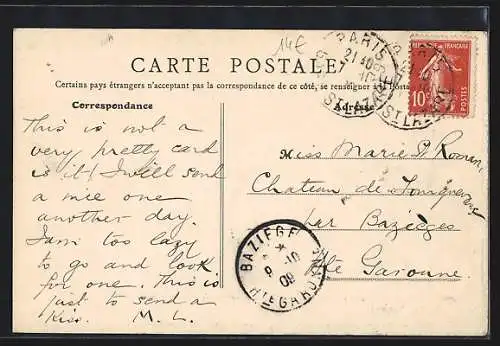 14€
CARTE POSTALE
Certains pays étrangers n'acceptant pas la correspondance de ce côté, se renseigner à la Poste
Correspondance
Adresse
This is not a
very pretty card
is it! I will send
a nice one
another day.
I am too lazy
to go and look
for one. This is
just to send a
Kiss. M. L.
Miss Marie P. Roman,
Chateau de
par Bazièges
Hte Garonne.
PARIS
ST LAZARE
BAZIEGE
9 - 10
09
HTE GARONNE
REPUBLIQUE FRANÇAISE
10
POSTES